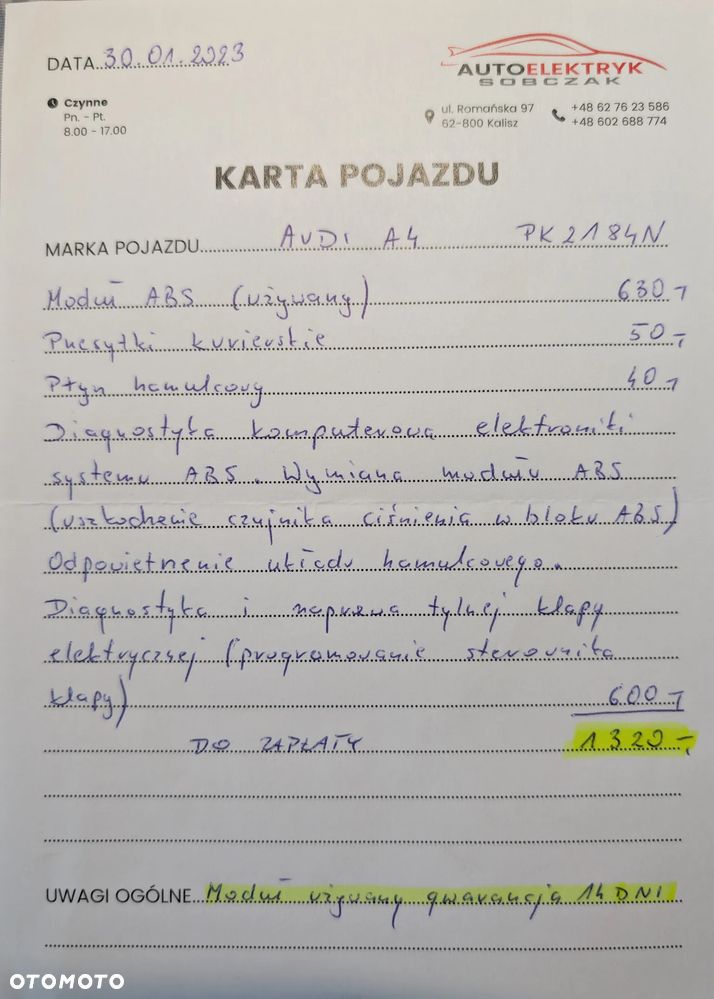 DATA 30.01.2023
AUTOELEKTRYK
SOBCZAK
Czynne
Pn. - Pt.
8.00 - 17.00
ul. Romańska 97
62-800 Kalisz
+48 62 76 23 586
+48 602 688 774
KARTA POJAZDU
MARKA POJAZDU AUDI A4 PK2184N
Moduł ABS (używany) 630,-
Przesyłki kurierskie 50,-
Płyn hamulcowy 40,-
Diagnostyka komputerowa elektroniki
systemu ABS. Wymiana modułu ABS
(uszkodzenie czujnika ciśnienia w bloku ABS)
Odpowietrzenie układu hamulcowego.
Diagnostyka i naprawa tylnej klapy
elektrycznej (programowanie sterownika
klapy) 600,-
DO ZAPŁATY 1320,-
UWAGI OGÓLNE Moduł używany gwarancja 14 DNI
OTOMOTO